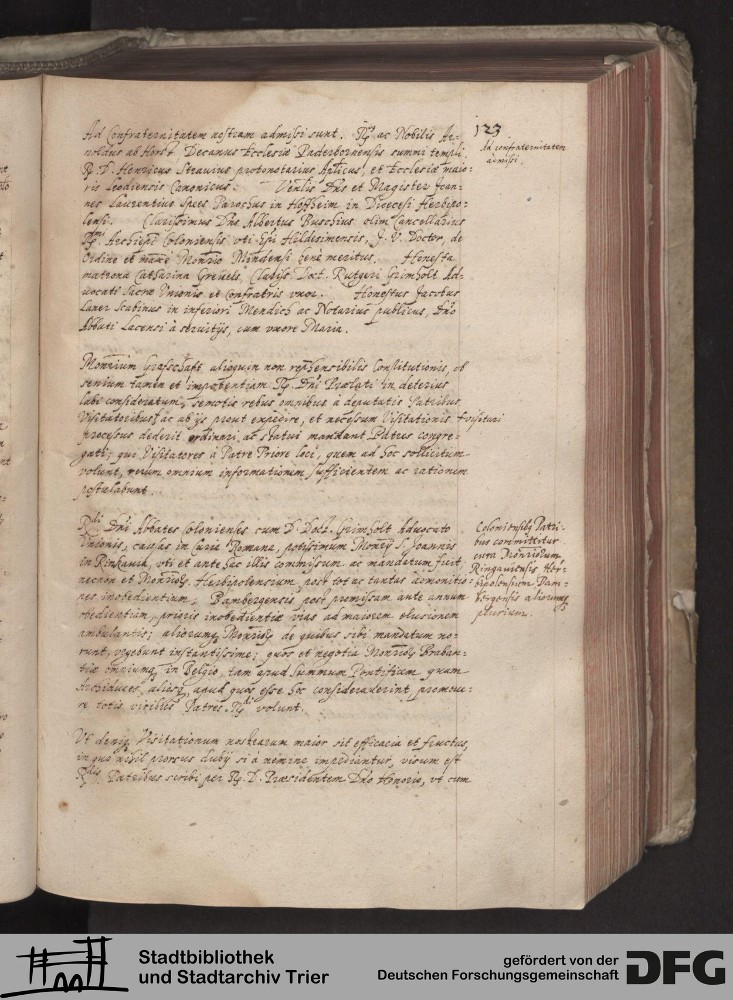 123
Ad Confraternitatem nostram admissi sunt. Rdus ac Nobilis Ar=
noldus ab Horst Decanus Ecclesiæ Paderbornensis summi templi.
R. D. Henricus Stravius protonotarius Aplicus, et Ecclesiæ maio=
ris Leodiensis Canonicus. Venlis Dns et Magister Joan=
nes Laurentius Spees Parochus in Hoffheim in Diœcesi Herbipo=
lensi. Clarissimus Dns Albertus Buschius olim Cancellarius
Rmi Archiepi Coloniensis uti Epi Hildesimensis, J. V. Doctor, de
Ordine et Monrio Mindensi bene meritus. Honesta
matrona Catharina Greuels, Clarissi Doct. Rutgeri Grimholt Ad=
uocati Sacræ Unionis et Confratris uxor. Honestus Jacobus
Laner Scabinus in inferiori Mendich ac Notarius publicus, Dno
Abbati Lacensi à seruitijs, cum uxore Maria.
Ad confraternitatem
admissi.
Monrium Grafschafft alioquin non reprehensibilis Constitutionis, ob
senium tamen et impotentiam R. Dni Prælati in deterius
labi consideratum, semotis rebus omnibus à deputatis Patribus
Visitatoribus ac ab ijs prout expedire, et necessum Visitationis + visitari
processus dederit ordinari ac statui mandant Patres congre=
gati; qui Visitatores à Patre Priore loci, quem ad hoc sollicitum
volunt, rerum omnium informationem sufficientem ac rationem
postulabunt.
Rdi Dni Abbates Colonienses cum D. Doct. Grimholt Aduocato
Unionis, causas in Curia Romana, potissimum Monrij S. Joannis
in Rinkauia, uti et ante hac illis commissum ac mandatum fuit,
necnon et Monriors Herbipolensium, post tot ac tantas admonitio=
nes inobedientium; Bambergensis post promissam ante annum
obedientiam, prioris inobedientiæ vias ad maiorem elusionem
ambulantis; aliorumq Monriors de quibus sibi mandatum no=
runt, vrgebunt instantissime; quos et negotia Monriors Braban=
tiæ omniumq in Belgio, tam apud Summum Pontificem quam
Archiduces, aliosq, apud quos esse hoc considerauerint promoue=
re totis viribus Patres Rdi volunt.
Coloniensibus Patri=
bus committitur
cura Monriorum
Ringauiensis Her=
bipolensium Bam=
bergensis aliorumq
plurium.
Ut deniq Visitationum nostrarum maior sit efficacia et fructus,
in quo nihil prorsus dubij si à nemine impediantur, visum est
Rdis Patribus scribi per R. D. Præsidentem Dno Honorio, vt cum
Stadtbibliothek
und Stadtarchiv Trier
gefördert von der
Deutschen Forschungsgemeinschaft
DFG